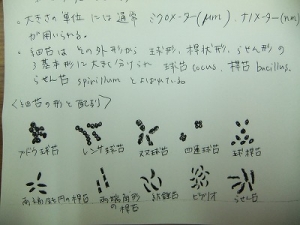 ・大きさの単位には通常 ミクロメーター(μm)、ナノメーター(nm)
が用いられる。
・細菌はその外形から 球形、桿状形、らせん形の
3基本形に大きく分けられ 球菌 cocus、桿菌 bacillus、
らせん菌 spirillum とよばれている
<細菌の形と配列>
ブドウ球菌 レンサ球菌 双球菌 四連球菌 球桿菌
両端鈍円の桿菌 両端角形の桿菌 紡錘菌 ビブリオ らせん菌